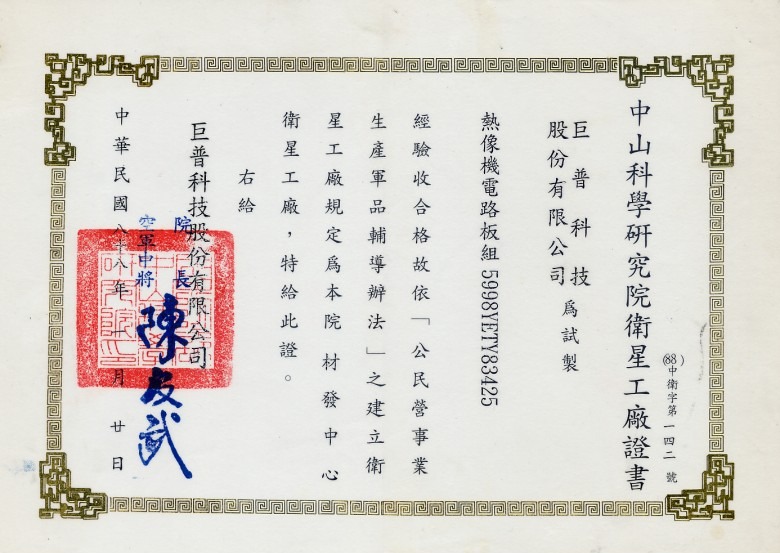 中山科學研究院衛星工廠證書
(88)中衛字第一四二號
巨普科技股份有限公司為試製
熱像機電路板組5998YETY83425
經驗收合格故依「公民營事業
生產軍品輔導辦法」之建立衛
星工廠規定為本院材發中心
衛星工廠，特給此證。
右給
巨普科技股份有限公司
院長
空軍中將
陳友武
中華民國八十八年一月廿日